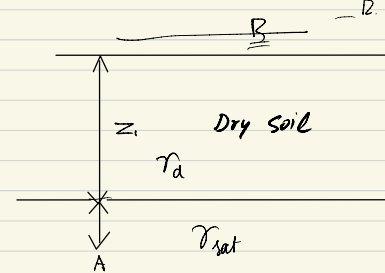 B
Z₁ Dry soil
γd
γsat
A